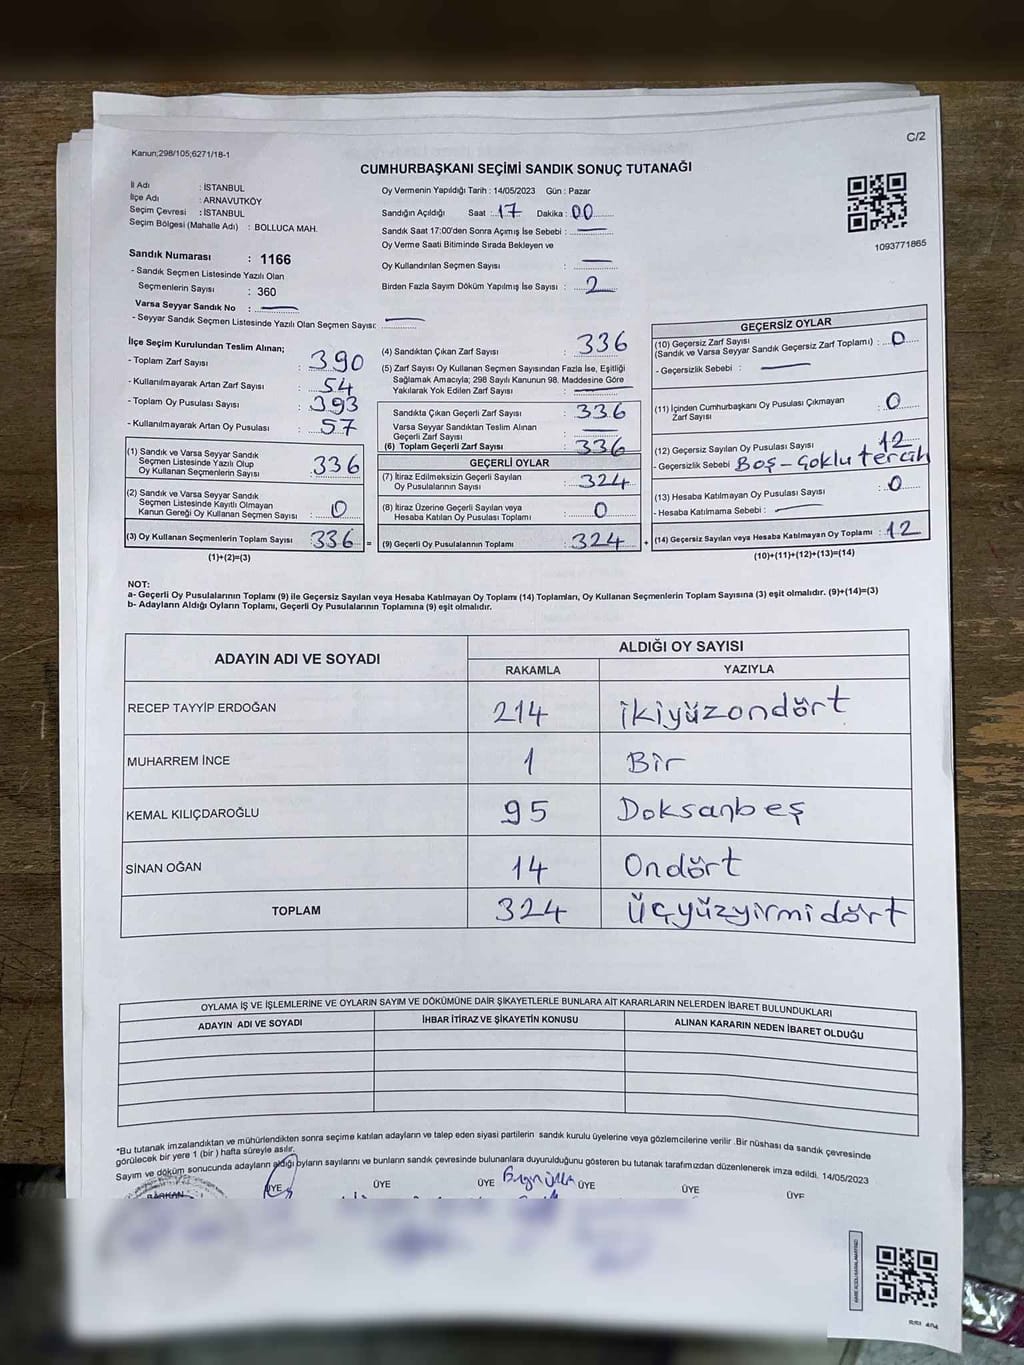 C/2
Kanun;298/105;6271/18-1
CUMHURBAŞKANI SEÇİMİ SANDIK SONUÇ TUTANAĞI
İl Adı : İSTANBUL
İlçe Adı : ARNAVUTKÖY
Seçim Çevresi : İSTANBUL
Seçim Bölgesi (Mahalle Adı) : BOLLUCA MAH.
Oy Vermenin Yapıldığı Tarih : 14/05/2023 Gün : Pazar
Sandığın Açıldığı Saat : 17 Dakika : 00
Sandık Saat 17:00'den Sonra Açımış İse Sebebi : —
Oy Verme Saati Bitiminde Sırada Bekleyen ve
Oy Kullandırılan Seçmen Sayısı : —
Birden Fazla Sayım Döküm Yapılmış İse Sayısı : 2
1093771865
Sandık Numarası : 1166
- Sandık Seçmen Listesinde Yazılı Olan
Seçmenlerin Sayısı : 360
Varsa Seyyar Sandık No : —
- Seyyar Sandık Seçmen Listesinde Yazılı Olan Seçmen Sayısı: —
İlçe Seçim Kurulundan Teslim Alınan;
- Toplam Zarf Sayısı : 390
- Kullanılmayarak Artan Zarf Sayısı : 54
- Toplam Oy Pusulası Sayısı : 393
- Kullanılmayarak Artan Oy Pusulası : 57
(1) Sandık ve Varsa Seyyar Sandık
Seçmen Listesinde Yazılı Olup
Oy Kullanan Seçmenlerin Sayısı : 336
(2) Sandık ve Varsa Seyyar Sandık
Seçmen Listesinde Kayıtlı Olmayan
Kanun Gereği Oy Kullanan Seçmen Sayısı : 0
(3) Oy Kullanan Seçmenlerin Toplam Sayısı : 336 =
(1)+(2)=(3)
(4) Sandıktan Çıkan Zarf Sayısı : 336
(5) Zarf Sayısı Oy Kullanan Seçmen Sayısından Fazla İse, Eşitliği
Sağlamak Amacıyla; 298 Sayılı Kanunun 98. Maddesine Göre
Yakılarak Yok Edilen Zarf Sayısı : —
Sandıkta Çıkan Geçerli Zarf Sayısı : 336
Varsa Seyyar Sandıktan Teslim Alınan
Geçerli Zarf Sayısı : —
(6) Toplam Geçerli Zarf Sayısı : 336
GEÇERLİ OYLAR
(7) İtiraz Edilmeksizin Geçerli Sayılan
Oy Pusulalarının Sayısı : 324
(8) İtiraz Üzerine Geçerli Sayılan veya
Hesaba Katılan Oy Pusulası Toplamı : 0
(9) Geçerli Oy Pusulalarının Toplamı : 324 +
GEÇERSİZ OYLAR
(10) Geçersiz Zarf Sayısı
(Sandık ve Varsa Seyyar Sandık Geçersiz Zarf Toplamı) : 0
- Geçersizlik Sebebi : —
(11) İçinden Cumhurbaşkanı Oy Pusulası Çıkmayan
Zarf Sayısı : 0
(12) Geçersiz Sayılan Oy Pusulası Sayısı : 12
- Geçersizlik Sebebi Boş - Çoklu tercih
(13) Hesaba Katılmayan Oy Pusulası Sayısı : 0
- Hesaba Katılmama Sebebi : —
(14) Geçersiz Sayılan veya Hesaba Katılmayan Oy Toplamı : 12
(10)+(11)+(12)+(13)=(14)
NOT:
a- Geçerli Oy Pusulalarının Toplamı (9) ile Geçersiz Sayılan veya Hesaba Katılmayan Oy Toplamı (14) Toplamları, Oy Kullanan Seçmenlerin Toplam Sayısına (3) eşit olmalıdır. (9)+(14)=(3)
b- Adayların Aldığı Oyların Toplamı, Geçerli Oy Pusulalarının Toplamına (9) eşit olmalıdır.
ADAYIN ADI VE SOYADI ALDIĞI OY SAYISI
RAKAMLA YAZIYLA
RECEP TAYYİP ERDOĞAN 214 ikiyüzondört
MUHARREM İNCE 1 Bir
KEMAL KILIÇDAROĞLU 95 Doksanbeş
SİNAN OĞAN 14 Ondört
TOPLAM 324 Üçyüzyirmidört
OYLAMA İŞ VE İŞLEMLERİNE VE OYLARIN SAYIM VE DÖKÜMÜNE DAİR ŞİKAYETLERLE BUNLARA AİT KARARLARIN NELERDEN İBARET BULUNDUKLARI
ADAYIN ADI VE SOYADI İHBAR İTİRAZ VE ŞİKAYETİN KONUSU ALINAN KARARIN NEDEN İBARET OLDUĞU
*Bu tutanak imzalandıktan ve mühürlendikten sonra seçime katılan adayların ve talep eden siyasi partilerin sandık kurulu üyelerine veya gözlemcilerine verilir .Bir nüshası da sandık çevresinde
görülecek bir yere 1 (bir ) hafta süreyle asılır.
Sayım ve döküm sonucunda adayların aldığı oyların sayılarını ve bunların sandık çevresinde bulunanlara duyurulduğunu gösteren bu tutanak tarafımızdan düzenlenerek imza edildi. 14/05/2023
BAŞKAN ÜYE ÜYE ÜYE ÜYE ÜYE ÜYE